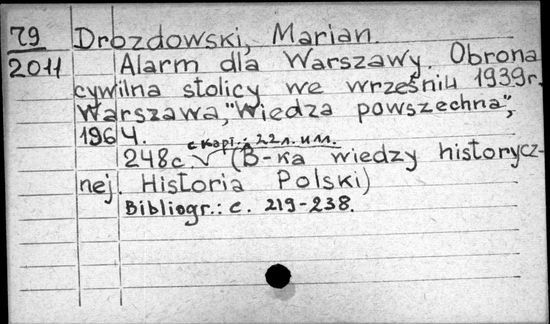 79
2011
Drozdowski, Marian.
Alarm dla Warszawy. Obrona
cywilna stolicy we wrześniu 1939r.
Warszawa, "Wiedza powszechna",
1964.
с карт.; 22 л. илл.
248с (B-ka wiedzy historycz-
nej. Historia Polski)
Bibliogr.: с. 219-238.